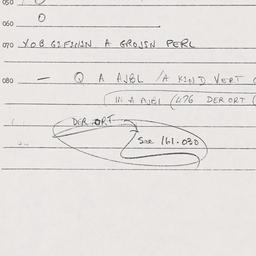 050
060 O
070 YOB GIFININ A GROJSN PERL
080 — Q A AJBL / A KIND VERT (
IN A AJBL (476 DER ORT (
DER ORT
See 161.030